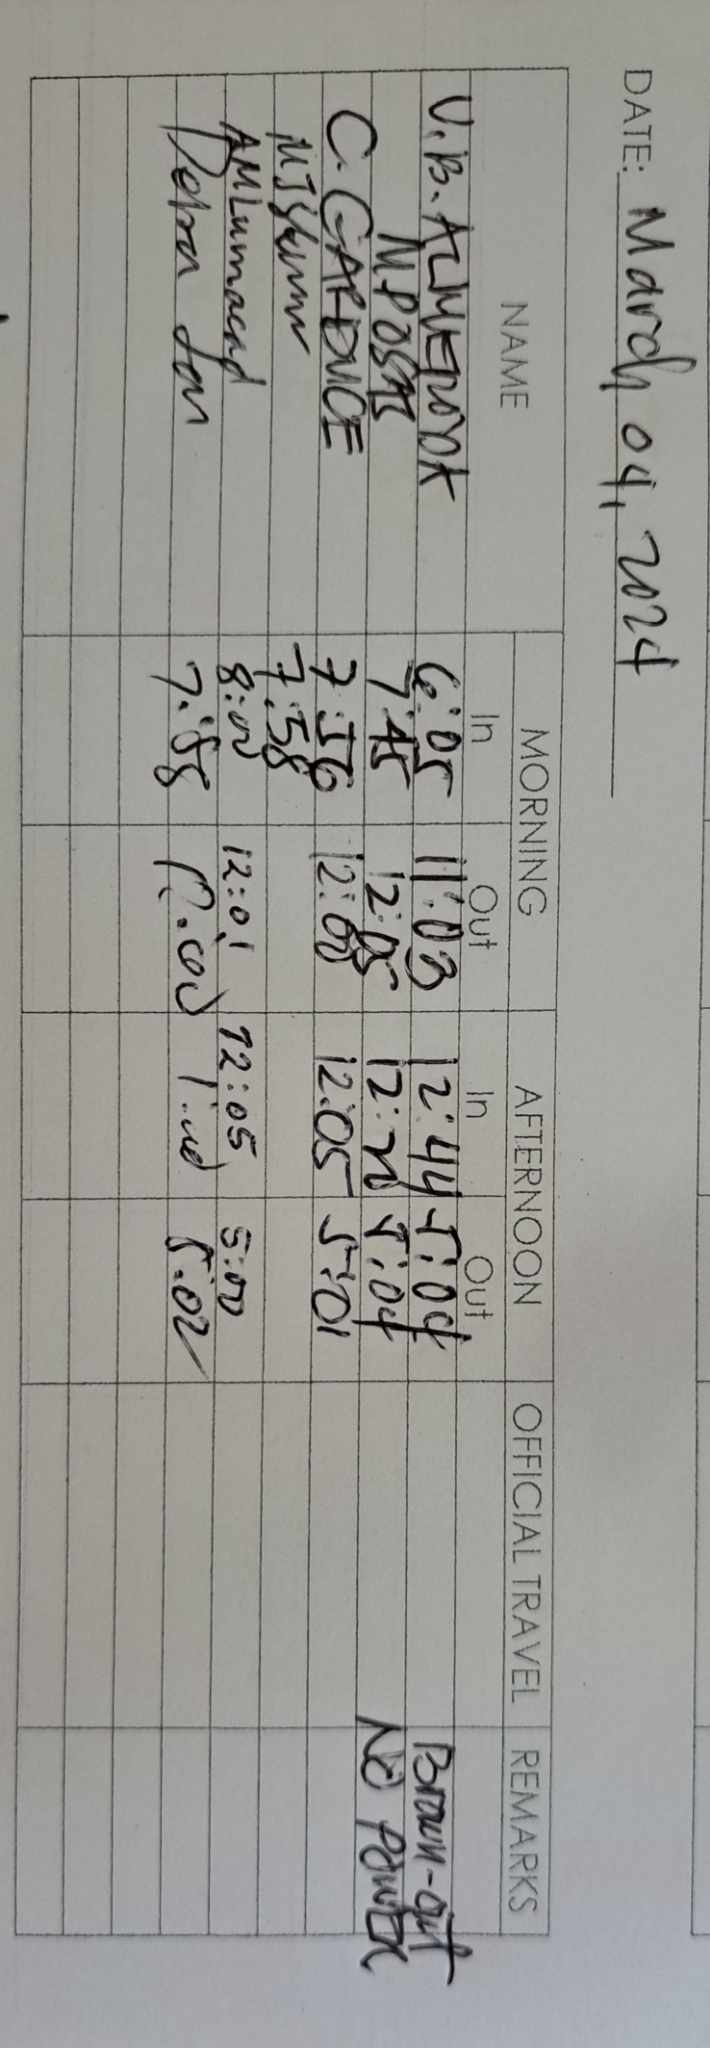 DATE: March 04, 2024
NAME MORNING AFTERNOON OFFICIAL TRAVEL REMARKS
In Out In Out
6:05 11:03 12:44 5:04 Brown-out
7:45 12:05 12:20 5:04 No power
C. CAPDUICE 7:56 12:00 12:05 5:01
7:58
AMLumacad 8:00 12:01 12:05 5:00
7:58 12:00 1:00 5:02